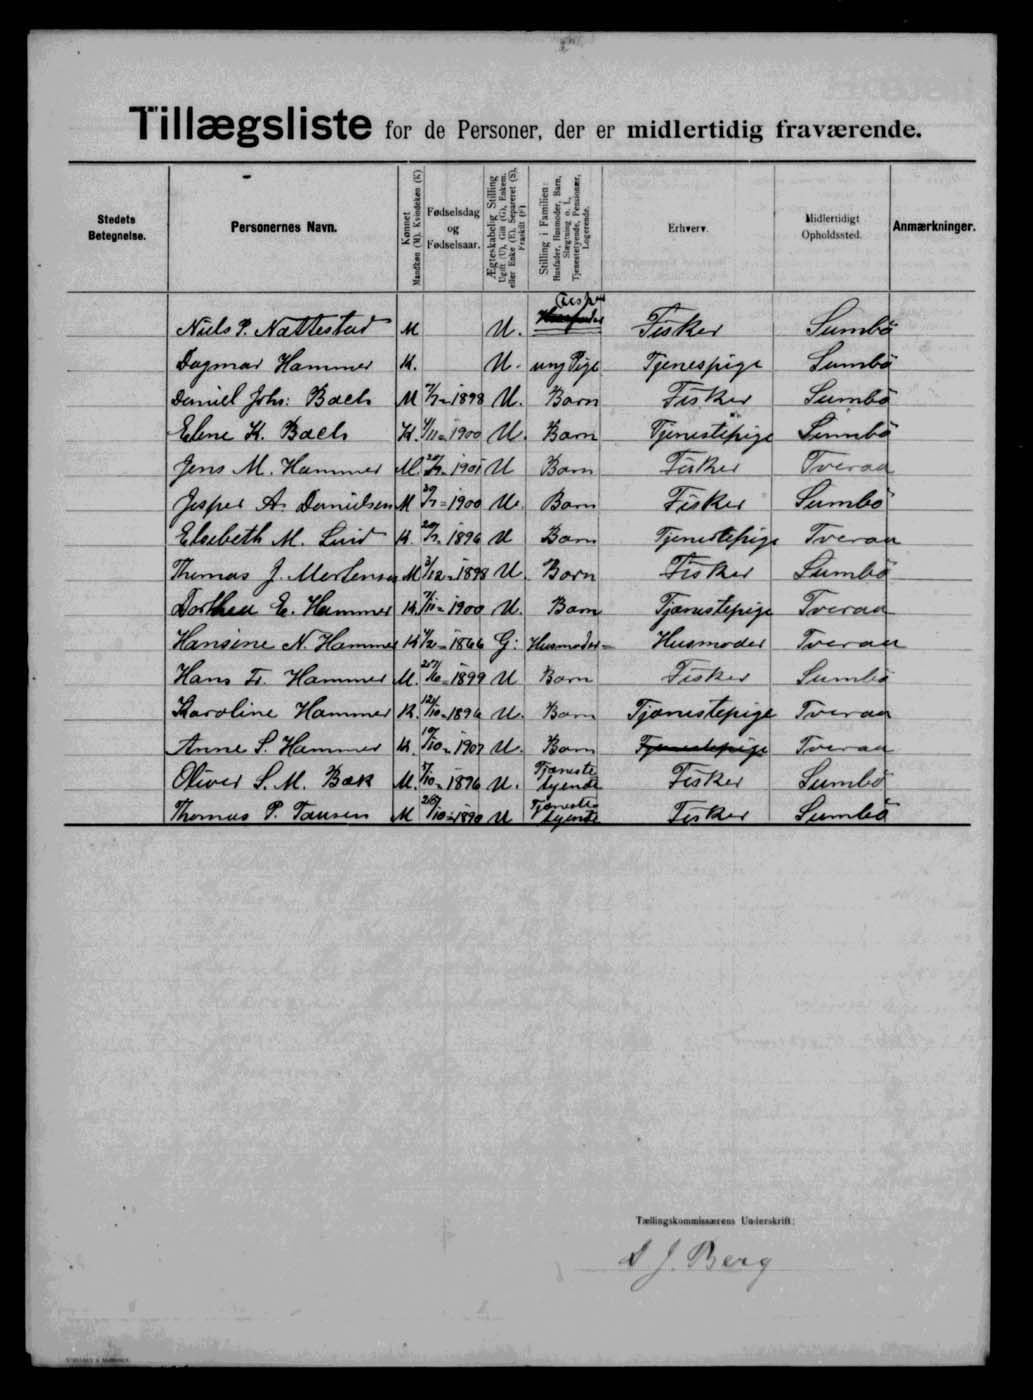 Tillægsliste for de Personer, der er midlertidig fraværende.
Stedets Betegnelse.
Personernes Navn.
Kønnet Mandkøn (M). Kvindekøn (K)
Fødselsdag og Fødselsaar.
Ægteskabelig Stilling Ugift (U), Gift (G), Enkem. eller Enke (E), Separeret (S), Fraskilt (F)
Stilling i Familien: Husfader, Husmoder, Barn, Slægtning o. l., Tjenestetyende, Pensionær, Logerende.
Erhverv.
Midlertidigt Opholdssted.
Anmærkninger.
Niels P. Nattestad M U. Husfader Fisker Sumbø
Dagmar Hammer K. U. ung Pige Tjenespige Sumbö
Daniel Johs: Bach M 1898 U. Barn Fisker Sumbö
Elene K. Bach K. /11 - 1900 U. Barn Tjenestepige Sumbö
Jens M. Hammer M. 1901 U Barn Fisker Tveraa
Jesper A. Danielsen M 1900 U. Barn Fisker Sumbö
Elsebeth M. Lind K. 1896 U Barn Tjenestepige Tveraa
Thomas J. Mortensen M 3/12 - 1898 U. Barn Fisker Sumbö
Dorthea E. Hammer K. /11 - 1900 U. Barn Tjænestepige Tveraa
Hansine N. Hammer K 1866 G: Husmoder Husmoder Tveraa
Hans Fr. Hammer M. 1899 U Barn Fisker Sumbö
Karoline Hammer K. 12/10 - 1896 U. Barn Tjænestepige Tveraa
Anne S. Hammer K. /10 - 1907 U. Barn Tjenestepige Tveraa
Oliver S. M. Bæk M. /10 - 1896 U. Tjæneste tyende Fisker Sumbö
Thomas P. Tausen M /10 - 1890 U Tjæneste tyende Fisker Sumbö
Tællingskommissærens Underskrift:
D J. Berg